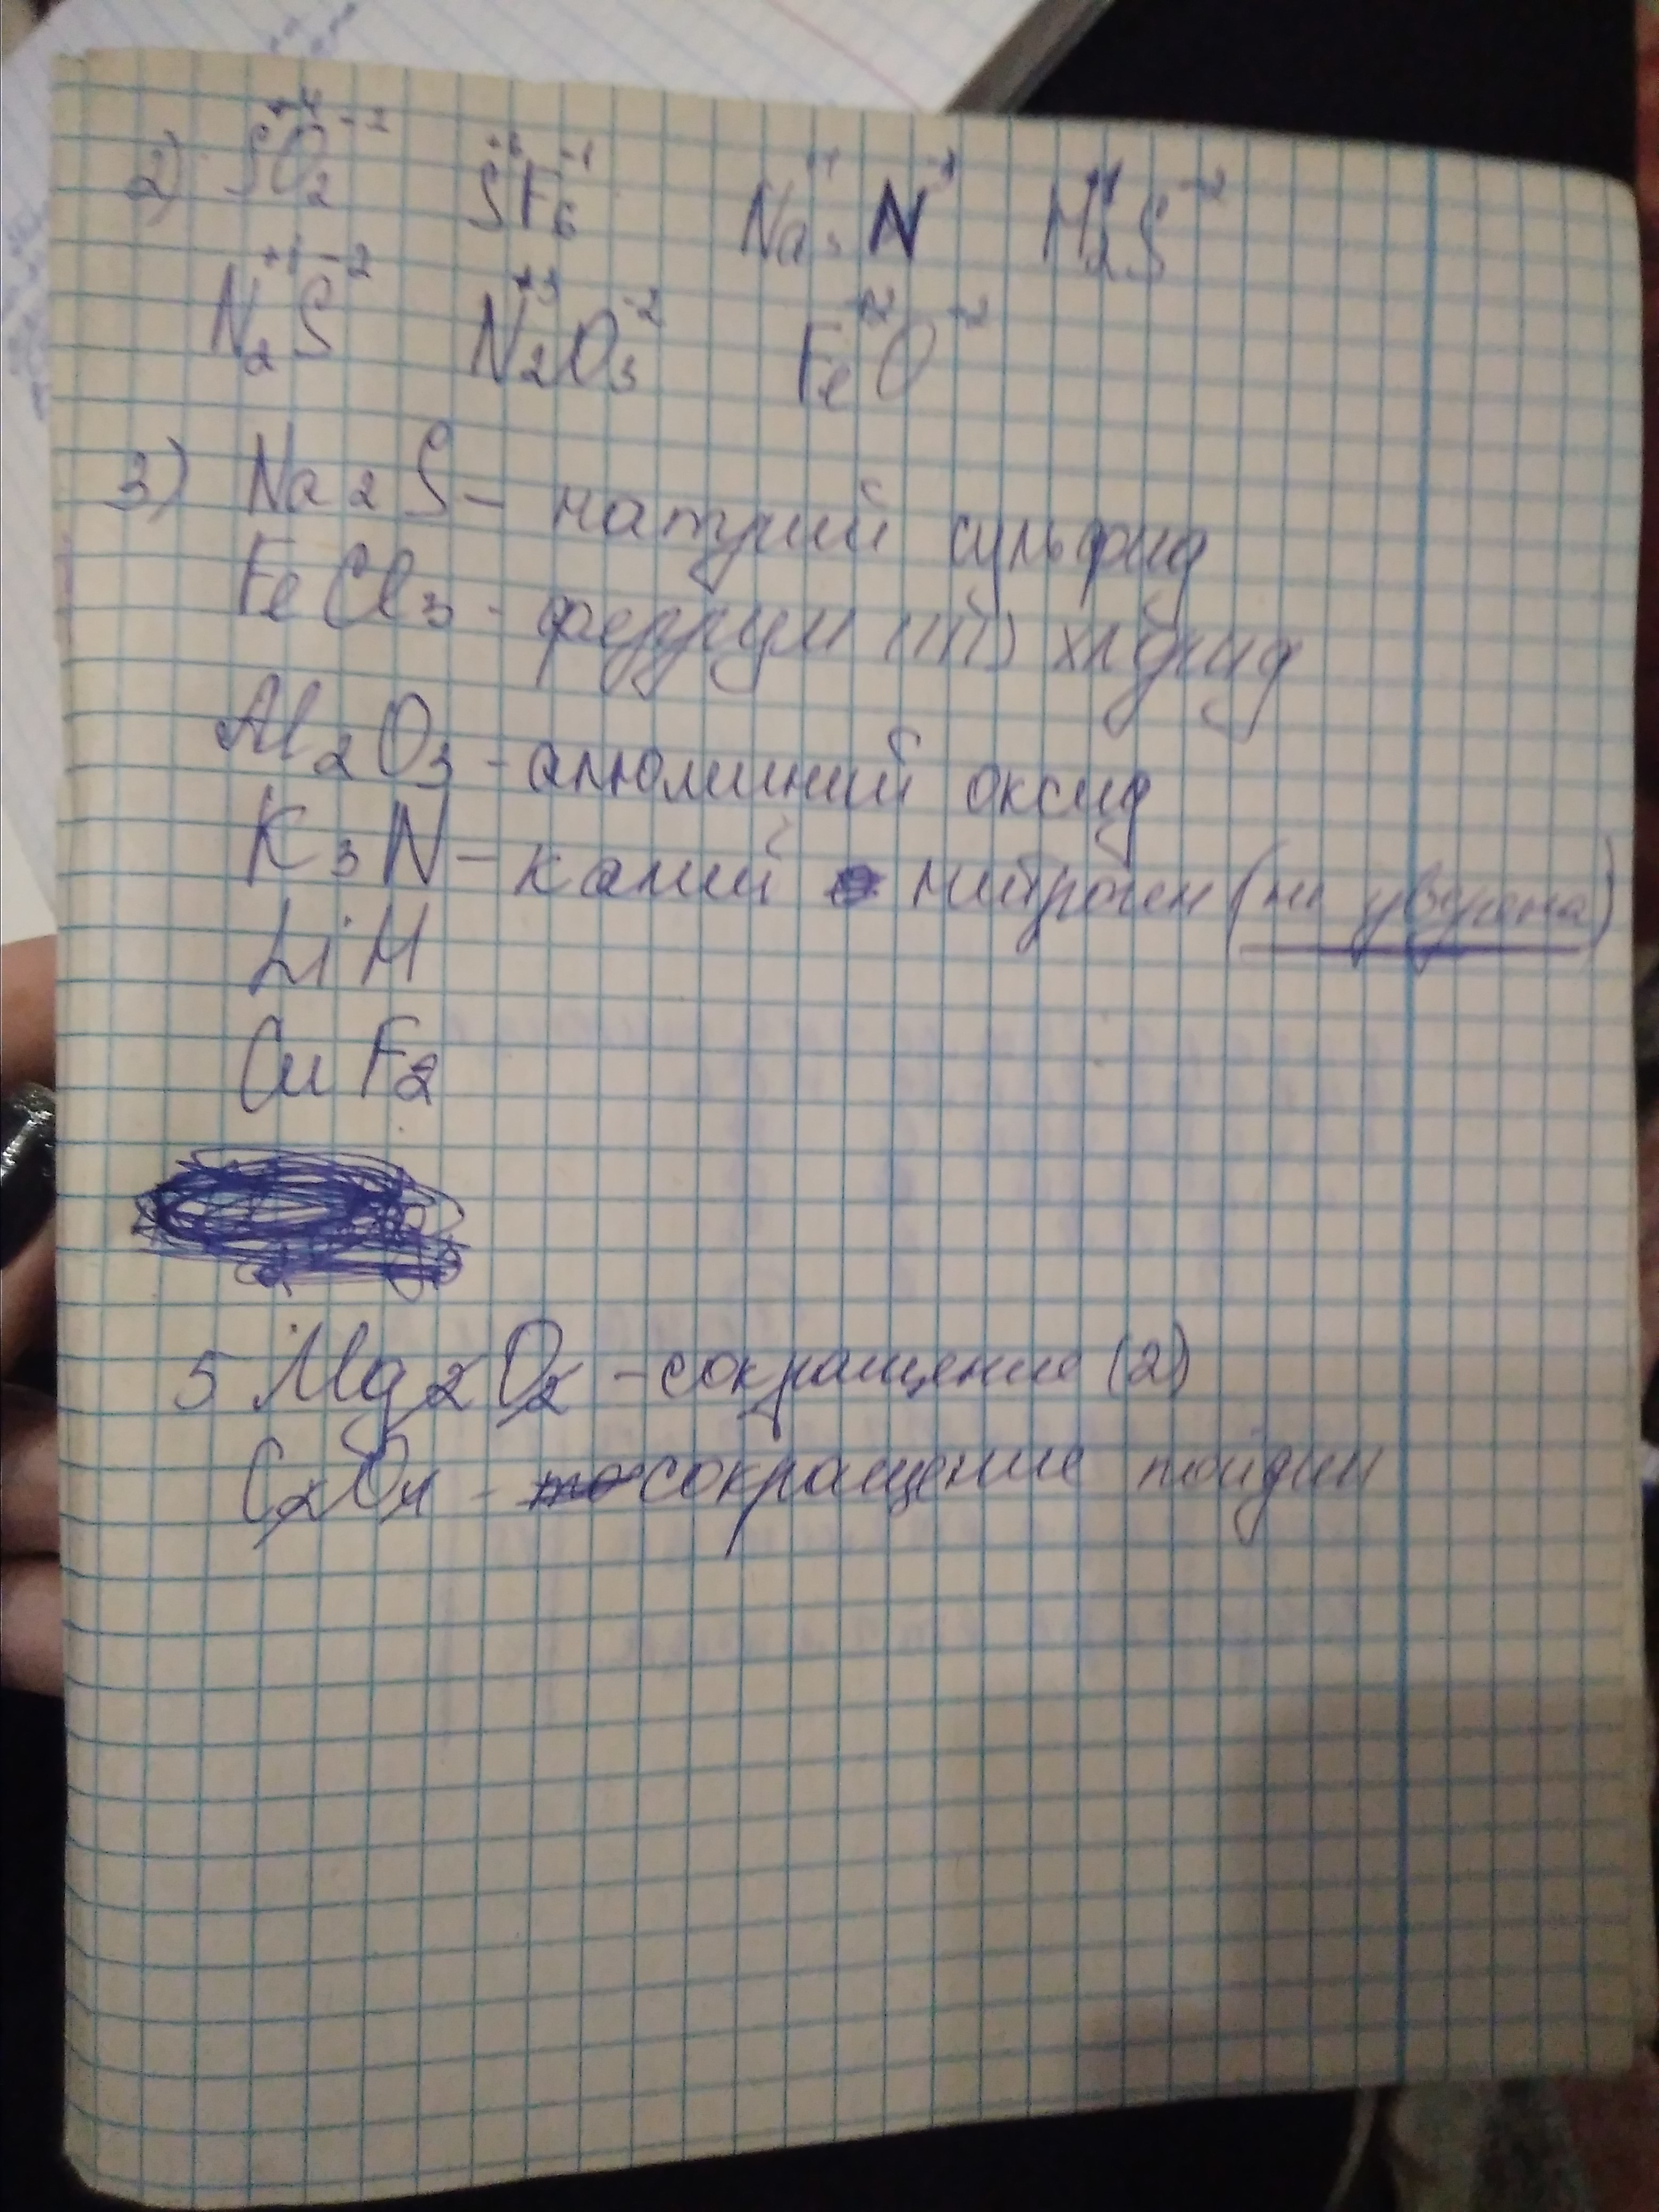 2) SO₂ +4 -2 SF₆ +6 -1 Na₃N +1 H₂S +1 -2
N₂S +1 -2 N₂O₃ +3 -2 FeO +2 -2
3) Na₂S - натрий сульфид
FeCl₃ - феррум (III) хлорид
Al₂O₃ - алюминий оксид
K₃N - калий нитроген (не уверена)
LiH
CuF₂
5 Mg₂O₂ - сокращение (2)
C₂O₄ - сокращение